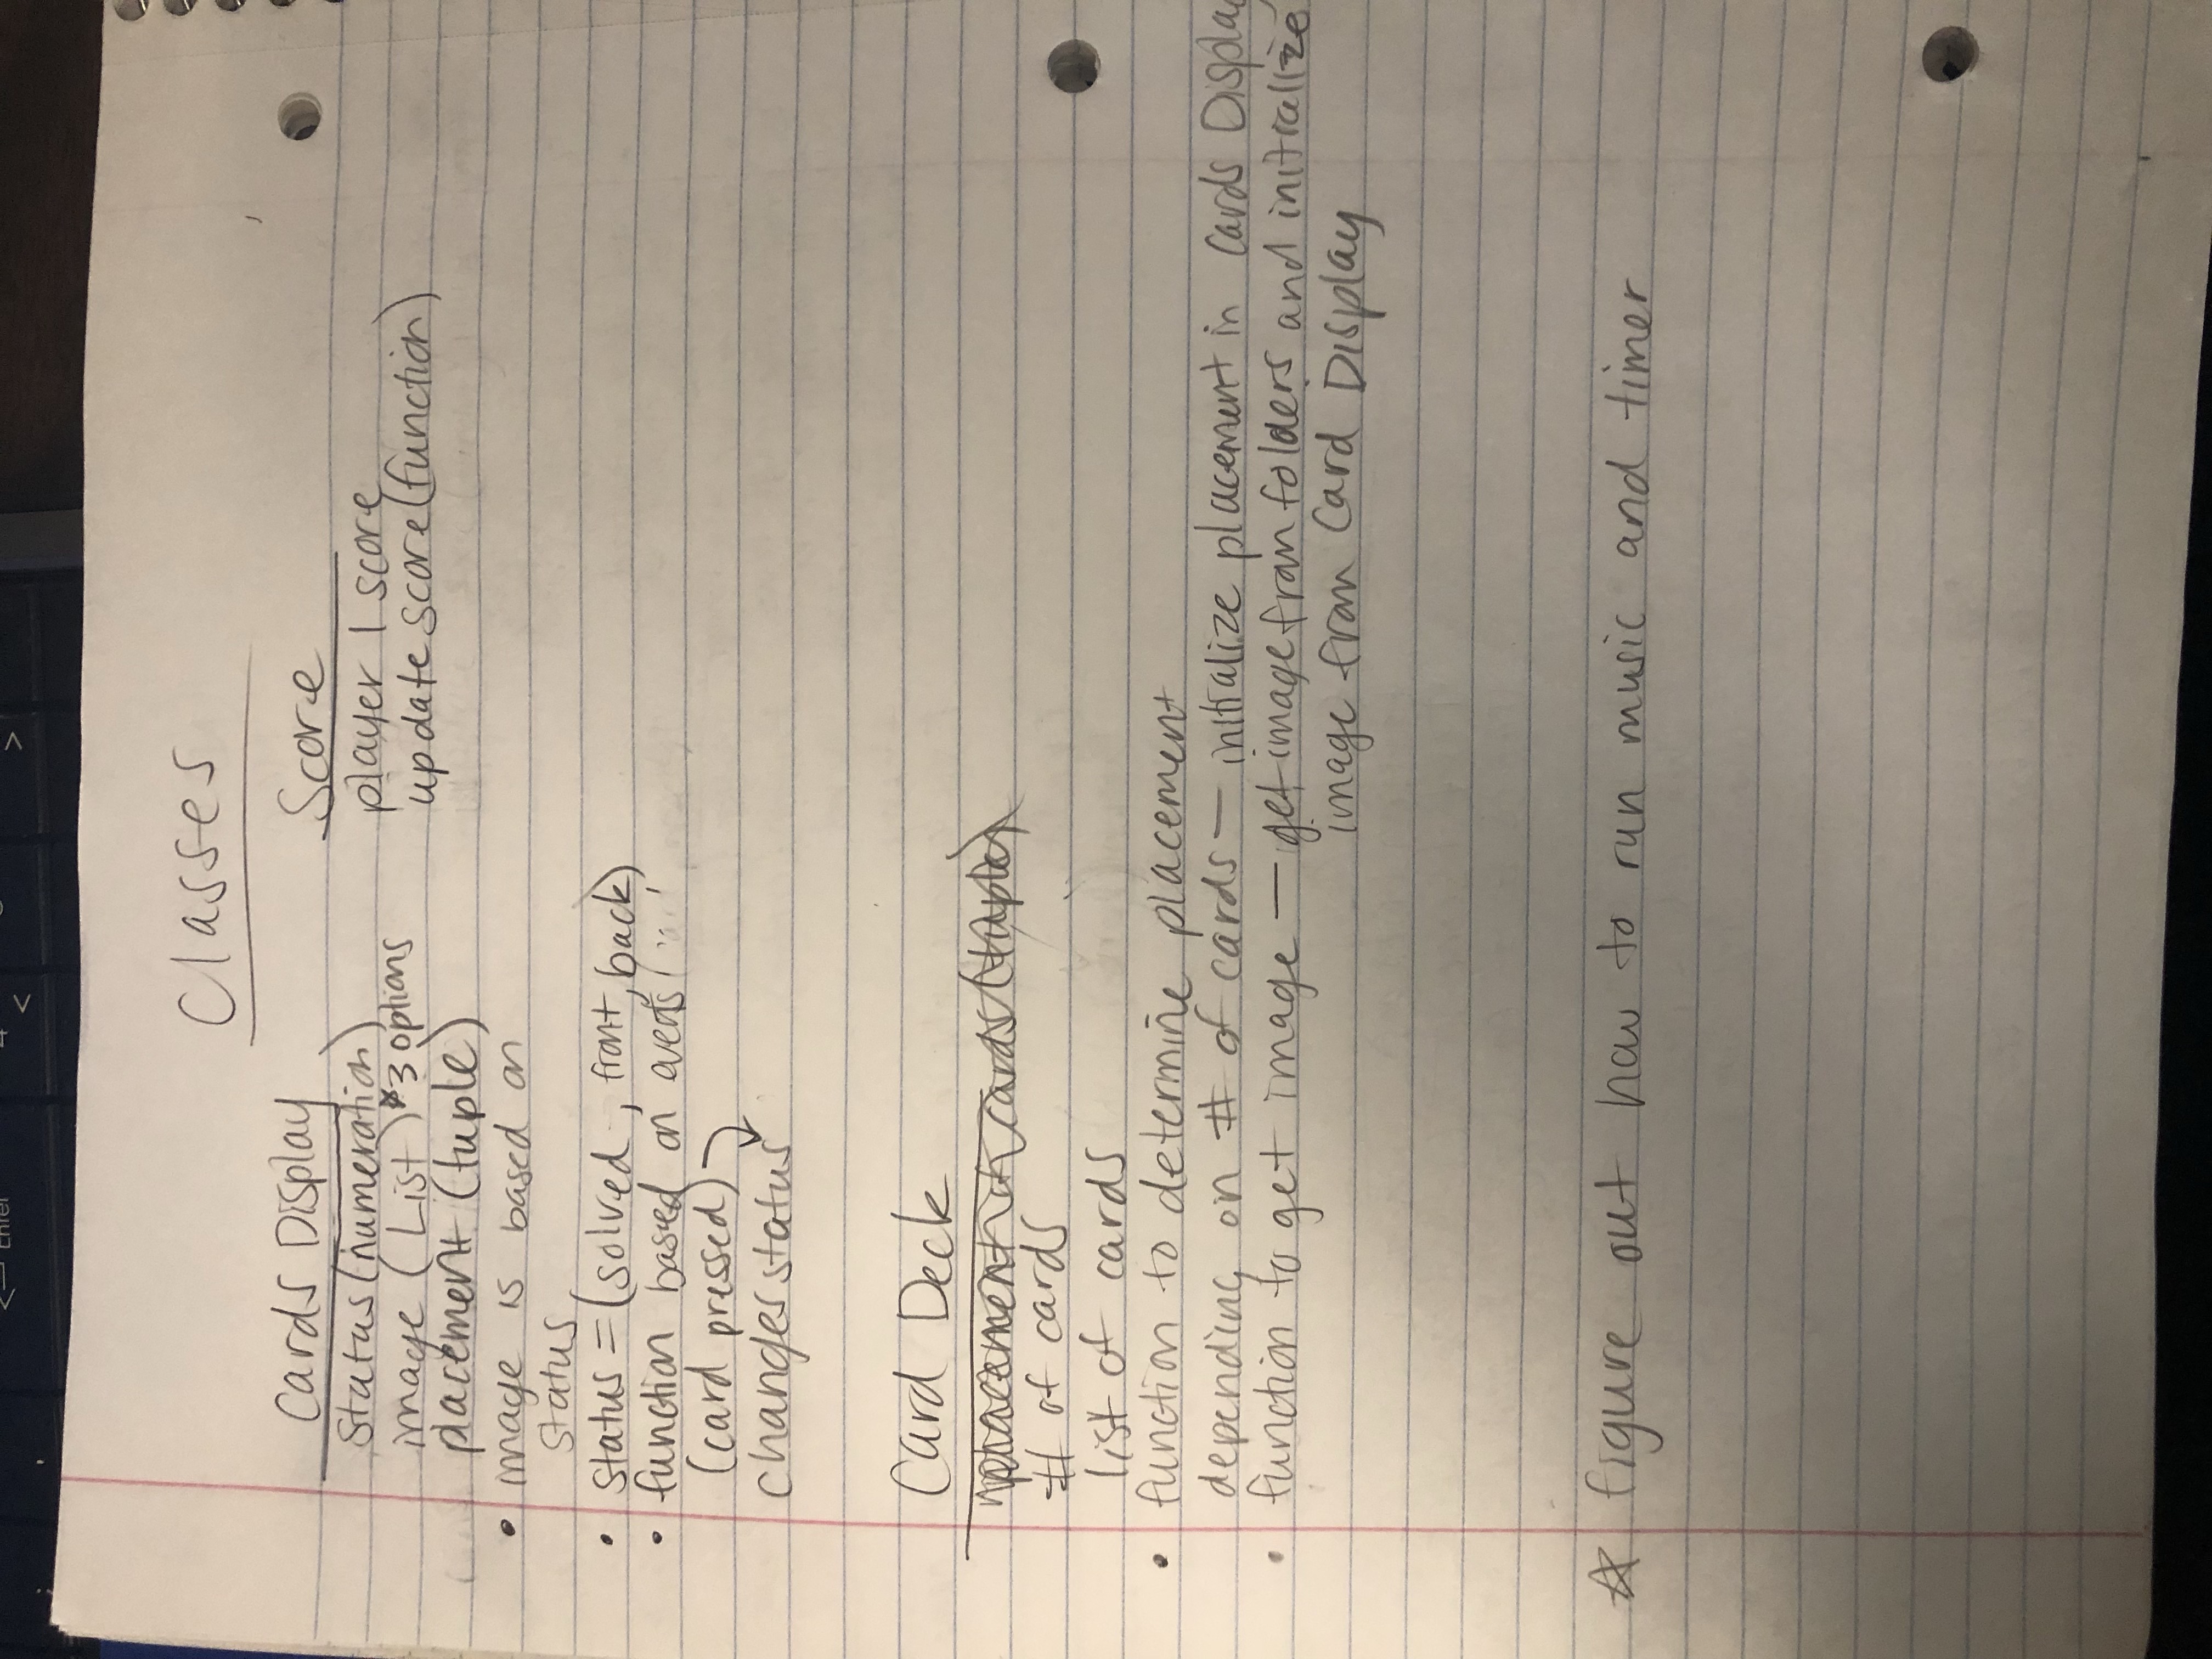 Enter
<
>
Classes
Cards Display
Status (numeration)
image (List) *3 options
placement (tuple)
• image is based on
status
• status = (solved, front, back)
• function based on events
(card pressed)
changes status
Score
player 1 score
update score (function)
Card Deck
placement of cards (tuple)
# of cards
list of cards
• function to determine placement
depending on # of cards — initialize placement in Cards Display
• function to get image — get image from folders and initialize
image from Card Display
☆ figure out how to run music and timer